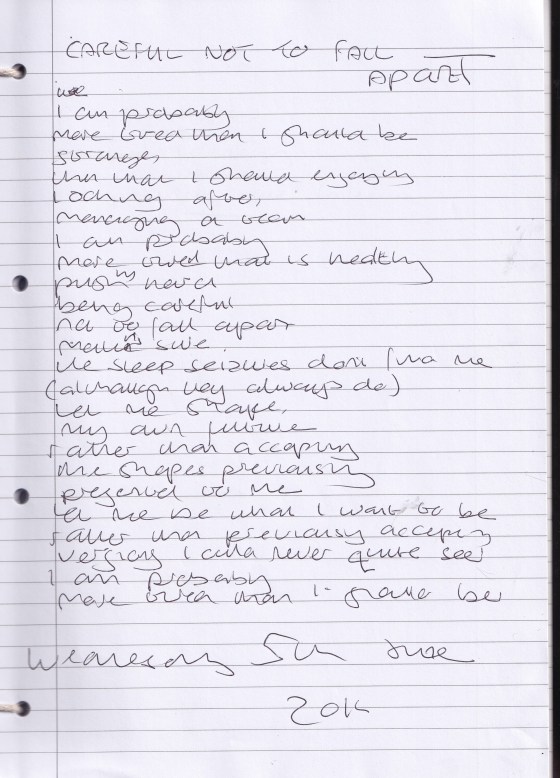 CAREFUL NOT TO FALL
APART
I am probably
more tired than I should be
stranger,
than what I should enjoying
looking after,
managing a team
I am probably
more tired than is healthy
pushing hard
being careful
not to fall apart
making sure
the sleep seizures dont find me
(although they always do)
Let me shape,
my own future
rather than accepting
the shapes previously
preserved to me
Let me be what I want to be
rather than previously accepting
versions I could never quite see
I am probably
more tired than I should be
Wednesday 5th June